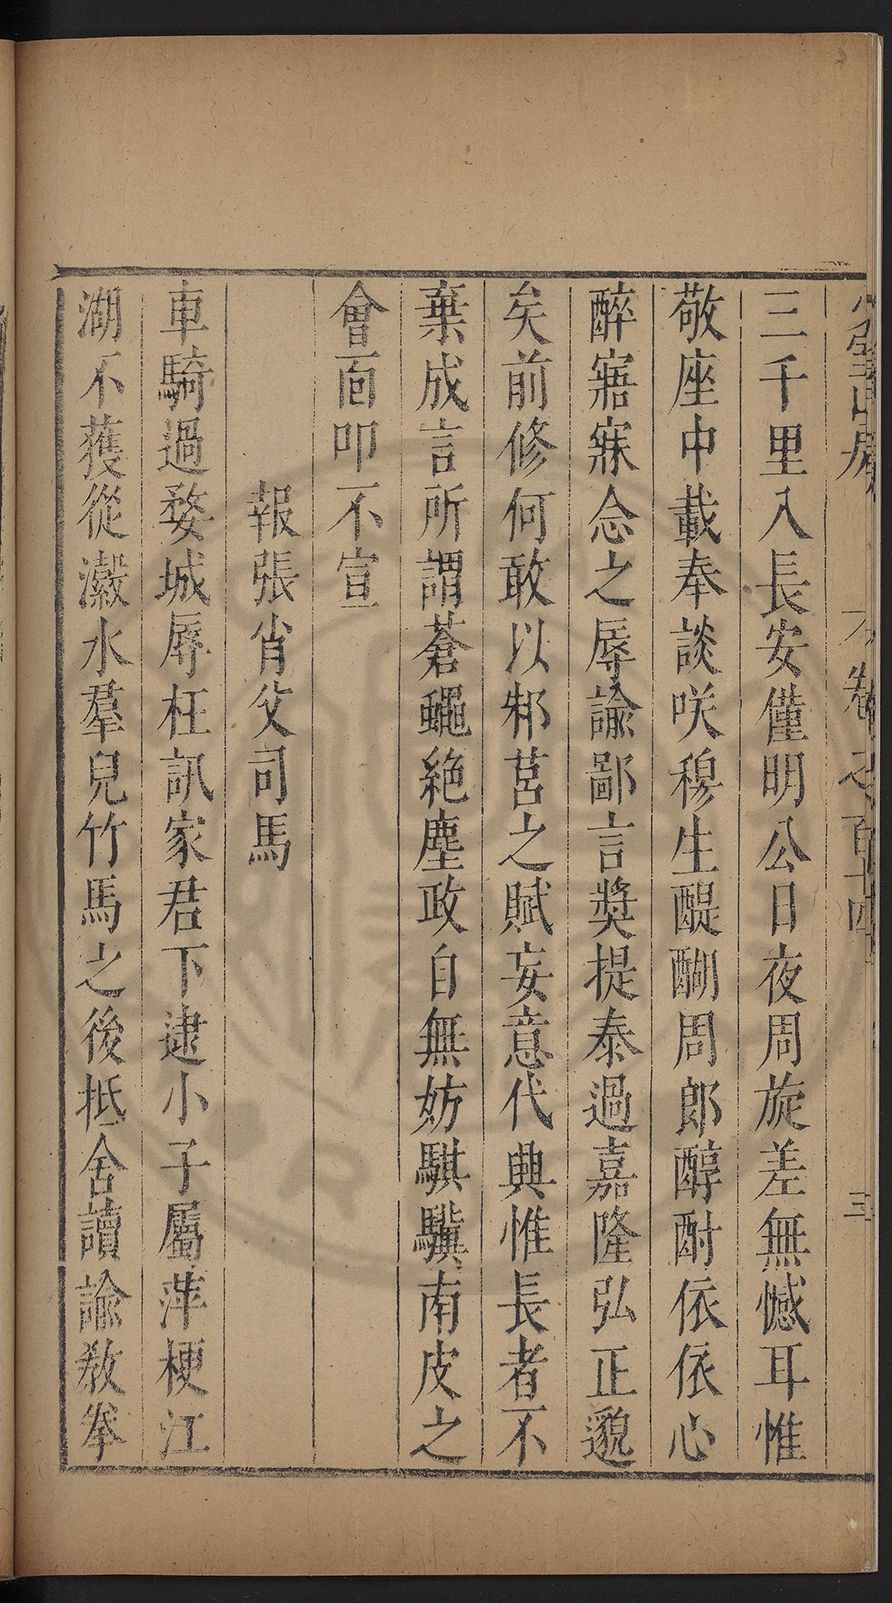 少室山房 卷之百十四 三
三千里入長安僅明公日夜周旋差無憾耳惟
敬座中載奉談咲穆生醍醐周郎醇酎依依心
醉寤寐念之辱諭鄙言奬提泰過嘉隆弘正邈
矣前修何敢以邾莒之賦妄意代興惟長者不
棄成言所謂蒼蠅絶塵政自無妨騏驥南皮之
會面叩不宣
報張肖父司馬
車騎過婺城辱枉訊家君下逮小子屬萍梗江
湖不獲從瀫水羣兒竹馬之後抵舍讀諭敎拳